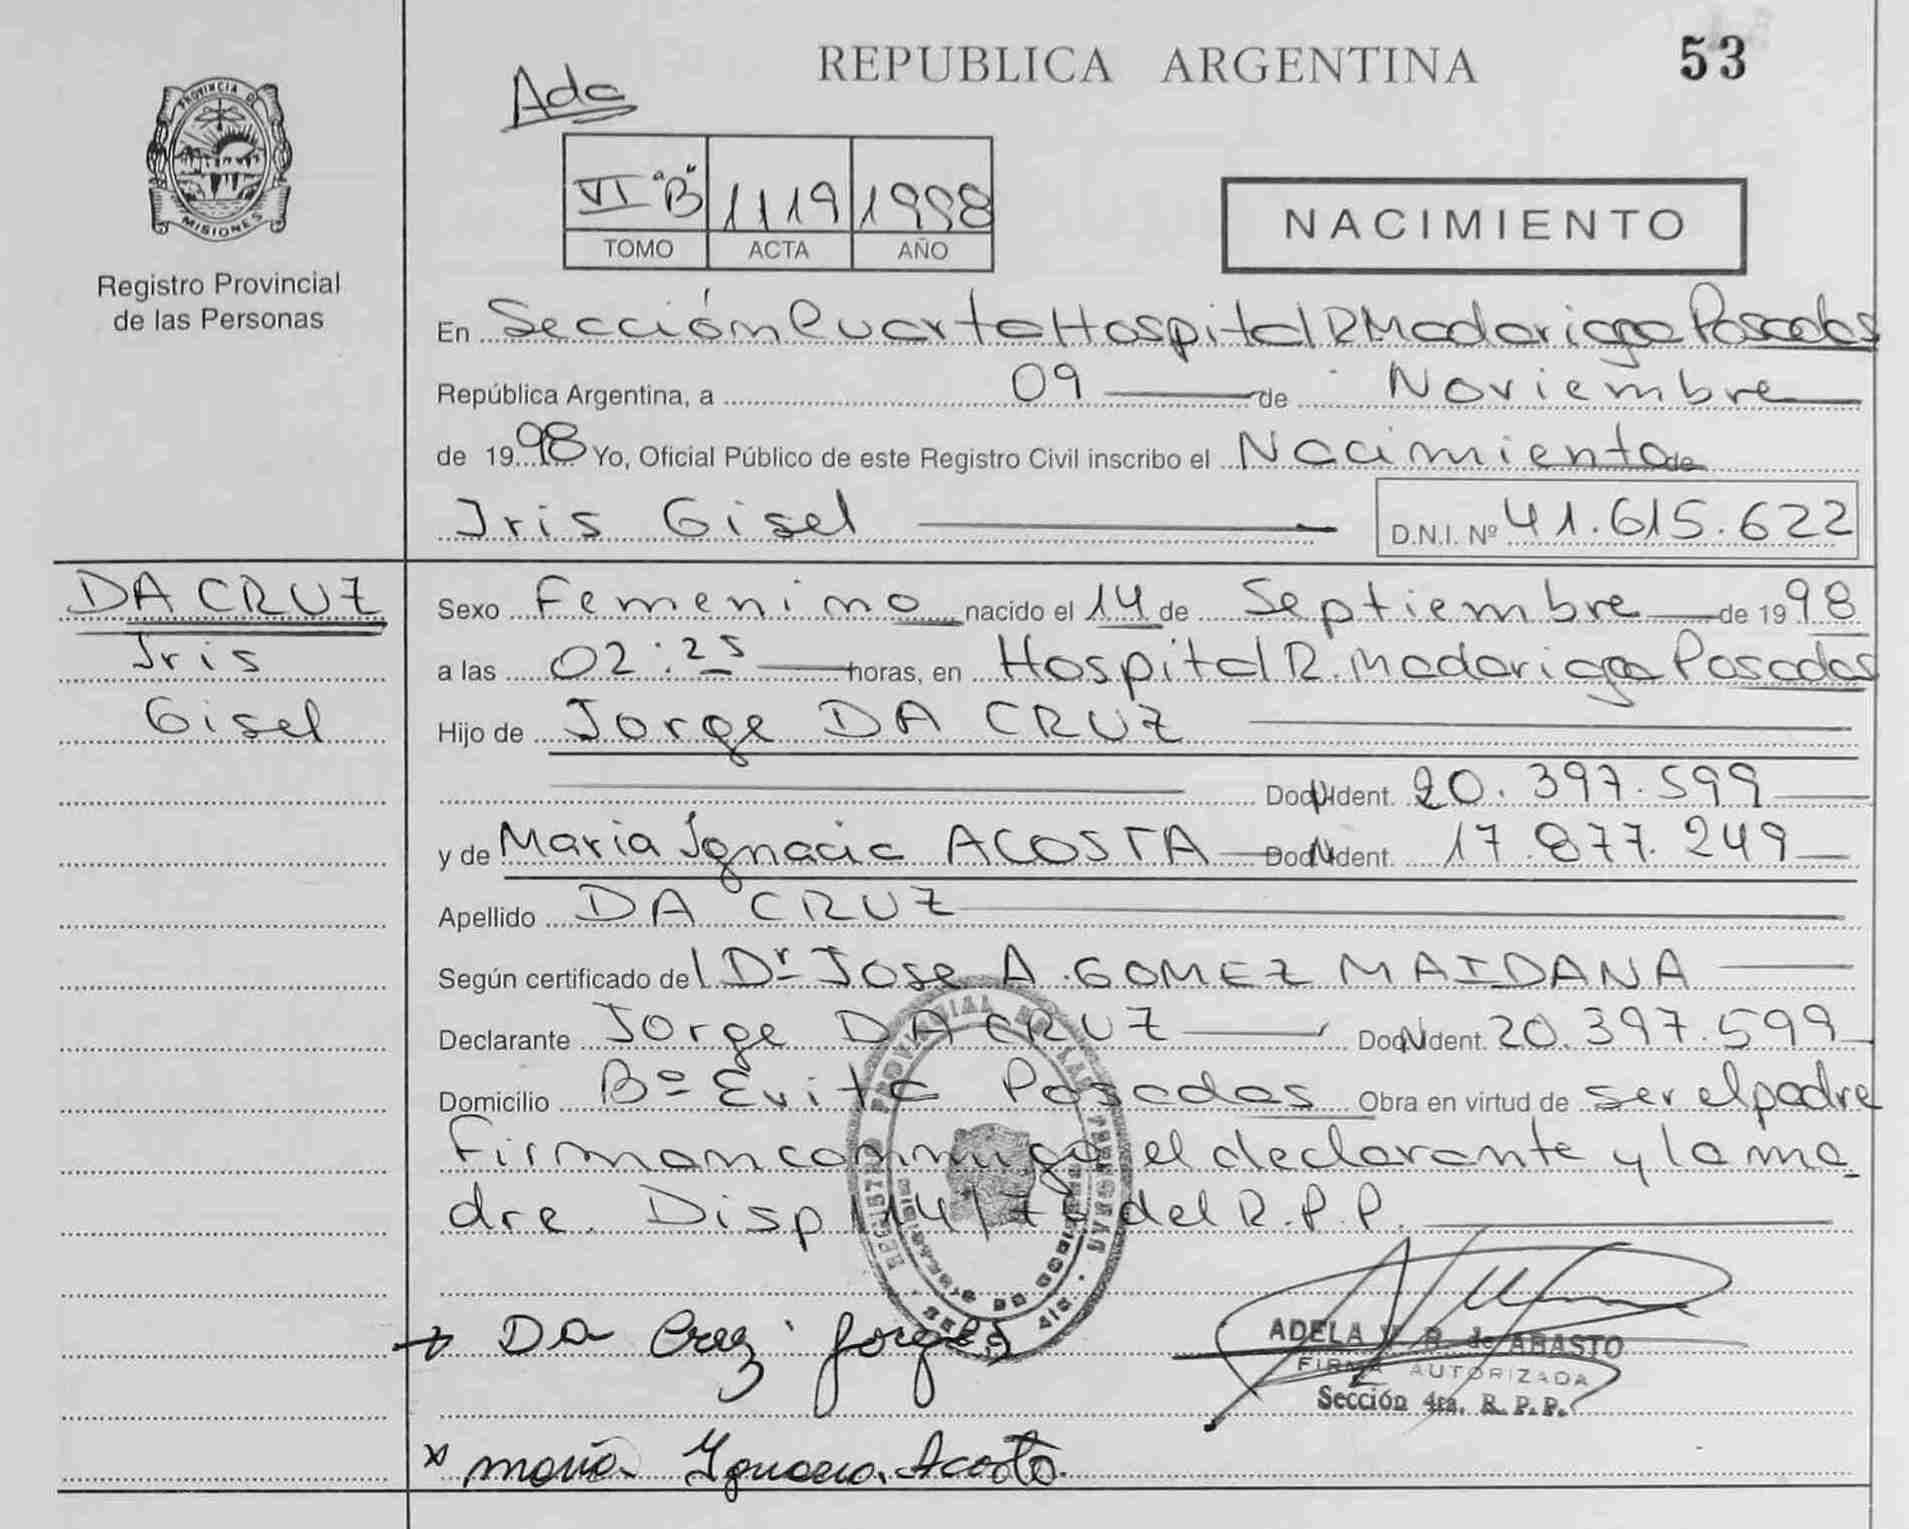 REPUBLICA ARGENTINA
53
Ada
PROVINCIA DE
MISIONES
Registro Provincial
de las Personas
VI "B" 1119 1998
TOMO ACTA AÑO
NACIMIENTO
En Sección Cuarta Hospital R Madariaga Posadas
República Argentina, a 09 de Noviembre
de 1998 Yo, Oficial Público de este Registro Civil inscribo el Nacimiento de
Iris Gisel D.N.I. Nº 41.615.622
DA CRUZ
Iris
Gisel
Sexo Femenino nacido el 14 de Septiembre de 1998
a las 02:25 horas, en Hospital R. Madariaga Posadas
Hijo de Jorge DA CRUZ
Doc. Ident. 20.397.599
y de Maria Ignacia ACOSTA Doc. Ident. 17.877.249
Apellido DA CRUZ
Según certificado del Dr Jose A. GOMEZ MAIDANA
Declarante Jorge DA CRUZ Doc. Ident. 20.397.599
Domicilio Bº Evita Posadas Obra en virtud de ser el padre
Firman conmigo el declarante y la ma
dre. Disp 114/74 del R.P.P.
REGISTRO PROVINCIAL DE LAS PERSONAS
Da Cruz Jorge
ADELA V. R. de ABASTO
FIRMA AUTORIZADA
Sección 4ta. R. P. P.
x maria Ignacia Acosta